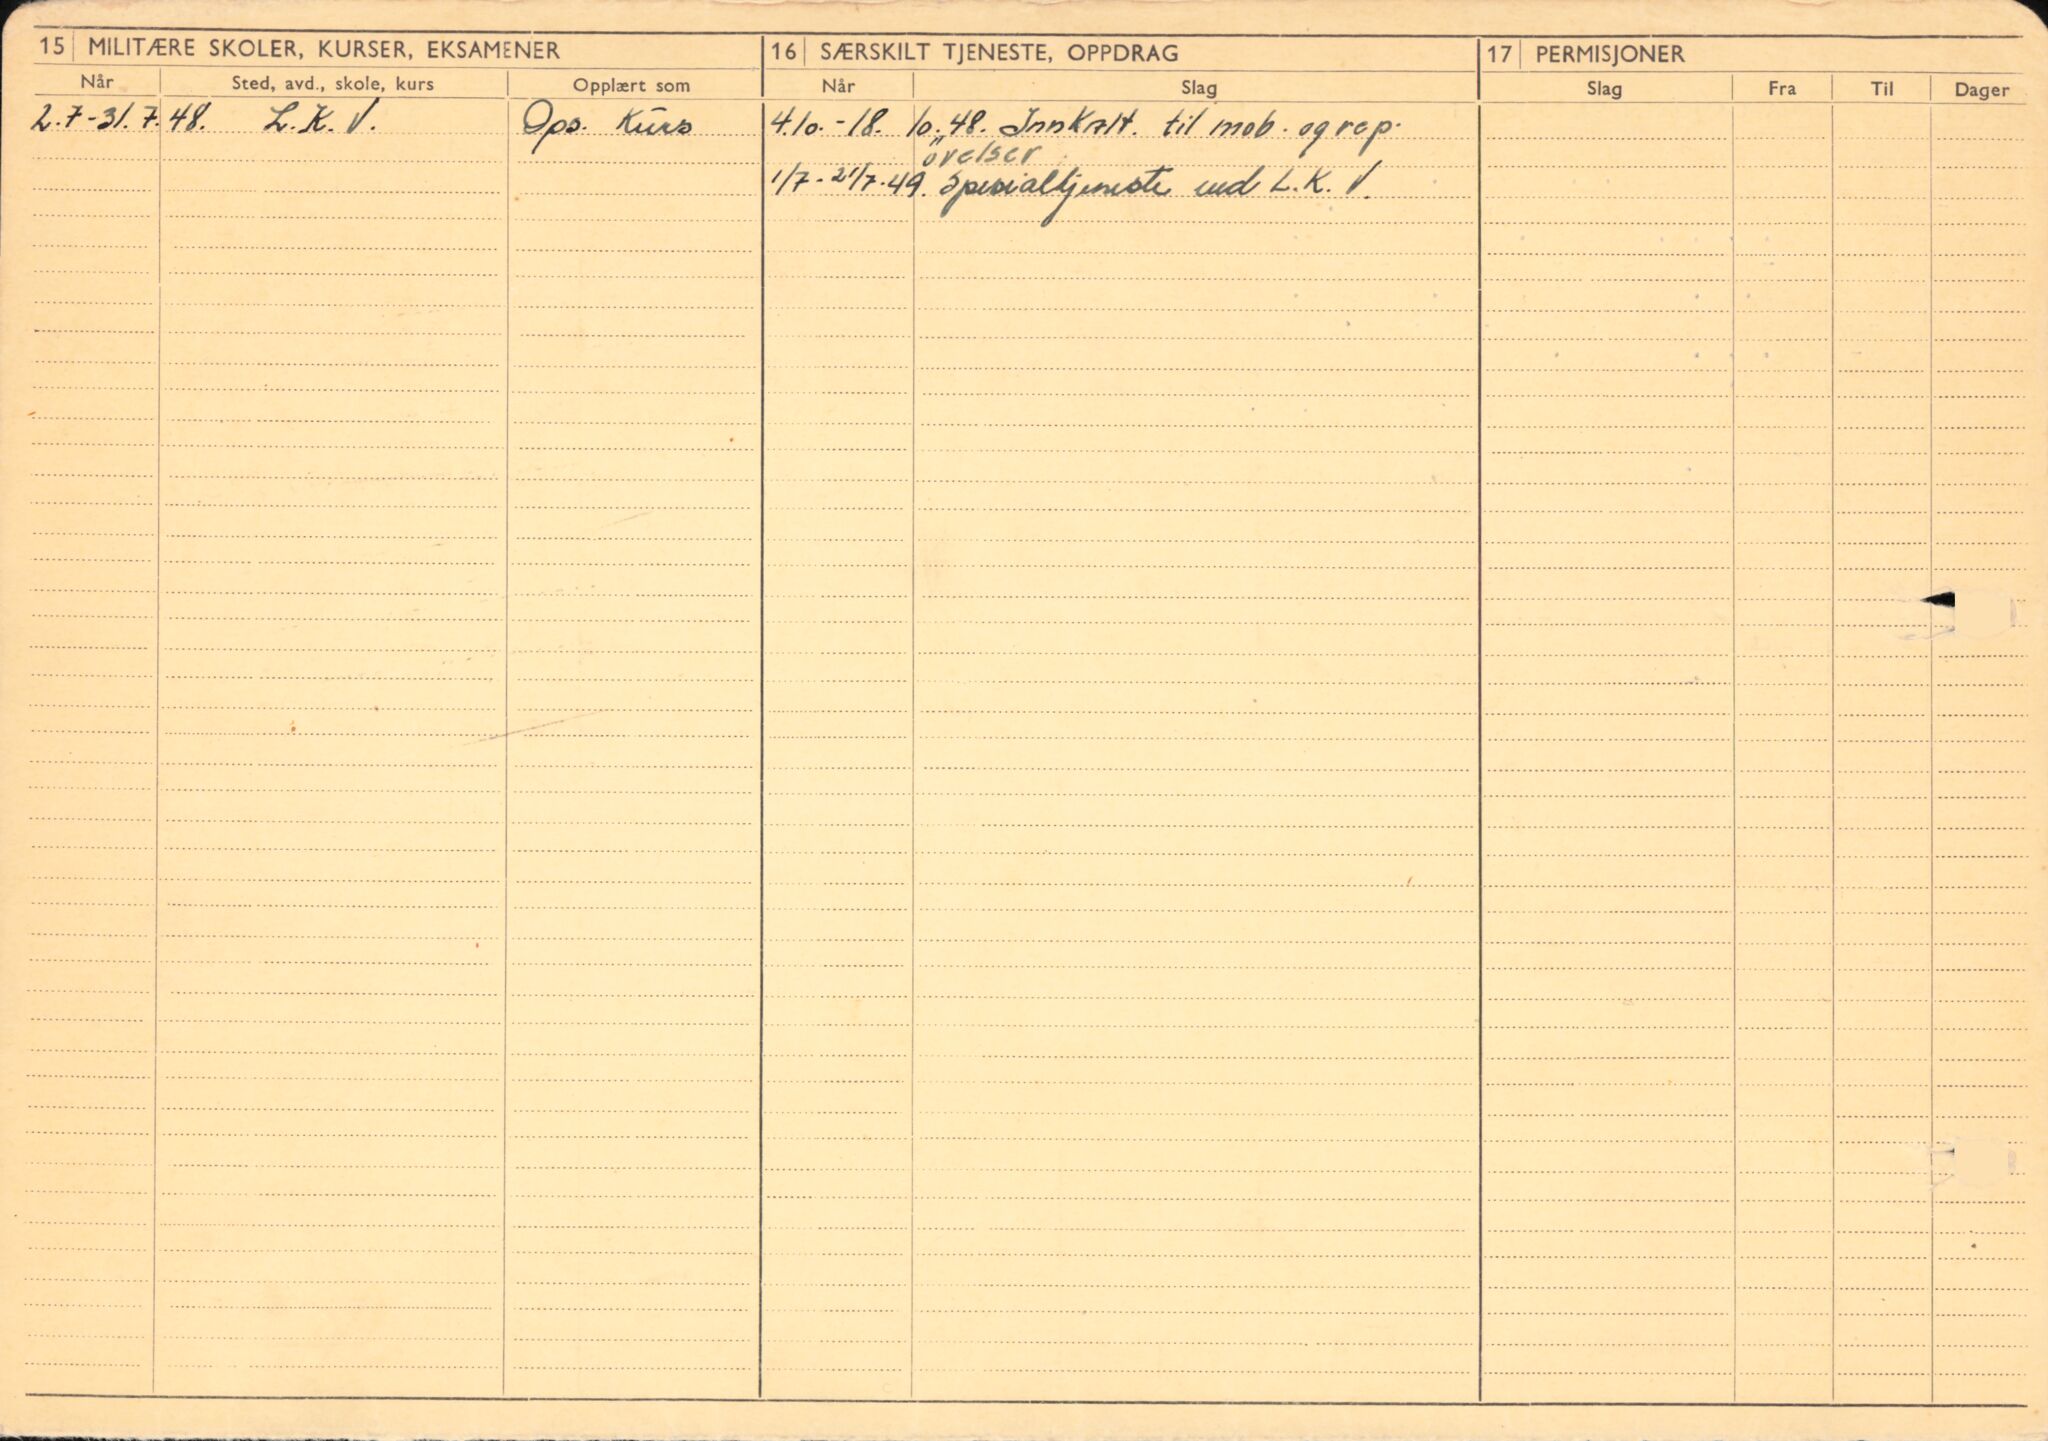 15 MILITÆRE SKOLER, KURSER, EKSAMENER
Når Sted, avd., skole, kurs Opplært som
2.7-31.7.48. L. K. V. Ops. Kurs
16 SÆRSKILT TJENESTE, OPPDRAG
Når Slag
4.10.-18.10.48. Innkalt. til mob. og rep.
øvelser
1/7-21/7-49. Spesialtjeneste ved L. K. V.
17 PERMISJONER
Slag Fra Til Dager